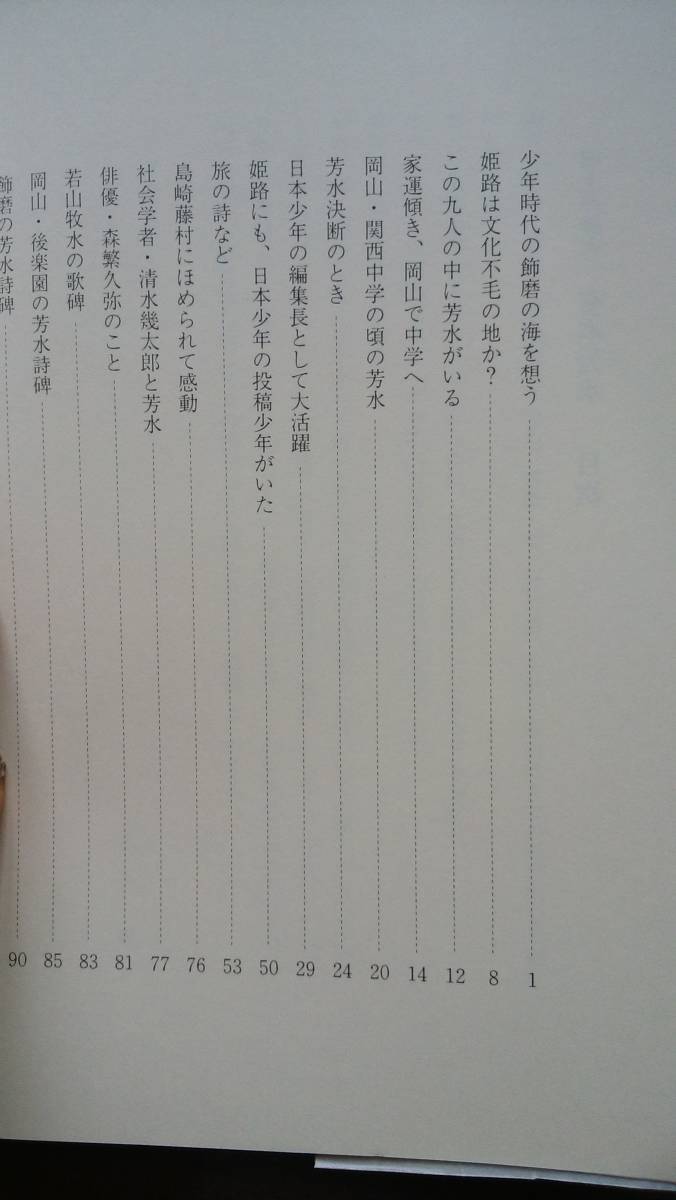 少年時代の飾磨の海を想う 1
姫路は文化不毛の地か? 8
この九人の中に芳水がいる 12
家運傾き、岡山で中学へ 14
岡山・関西中学の頃の芳水 20
芳水決断のとき 24
日本少年の編集長として大活躍 29
姫路にも、日本少年の投稿少年がいた 50
旅の詩など 53
島崎藤村にほめられて感動 76
社会学者・清水幾太郎と芳水 77
俳優・森繁久弥のこと 81
若山牧水の歌碑 83
岡山・後楽園の芳水詩碑 85
飾磨の芳水詩碑 90